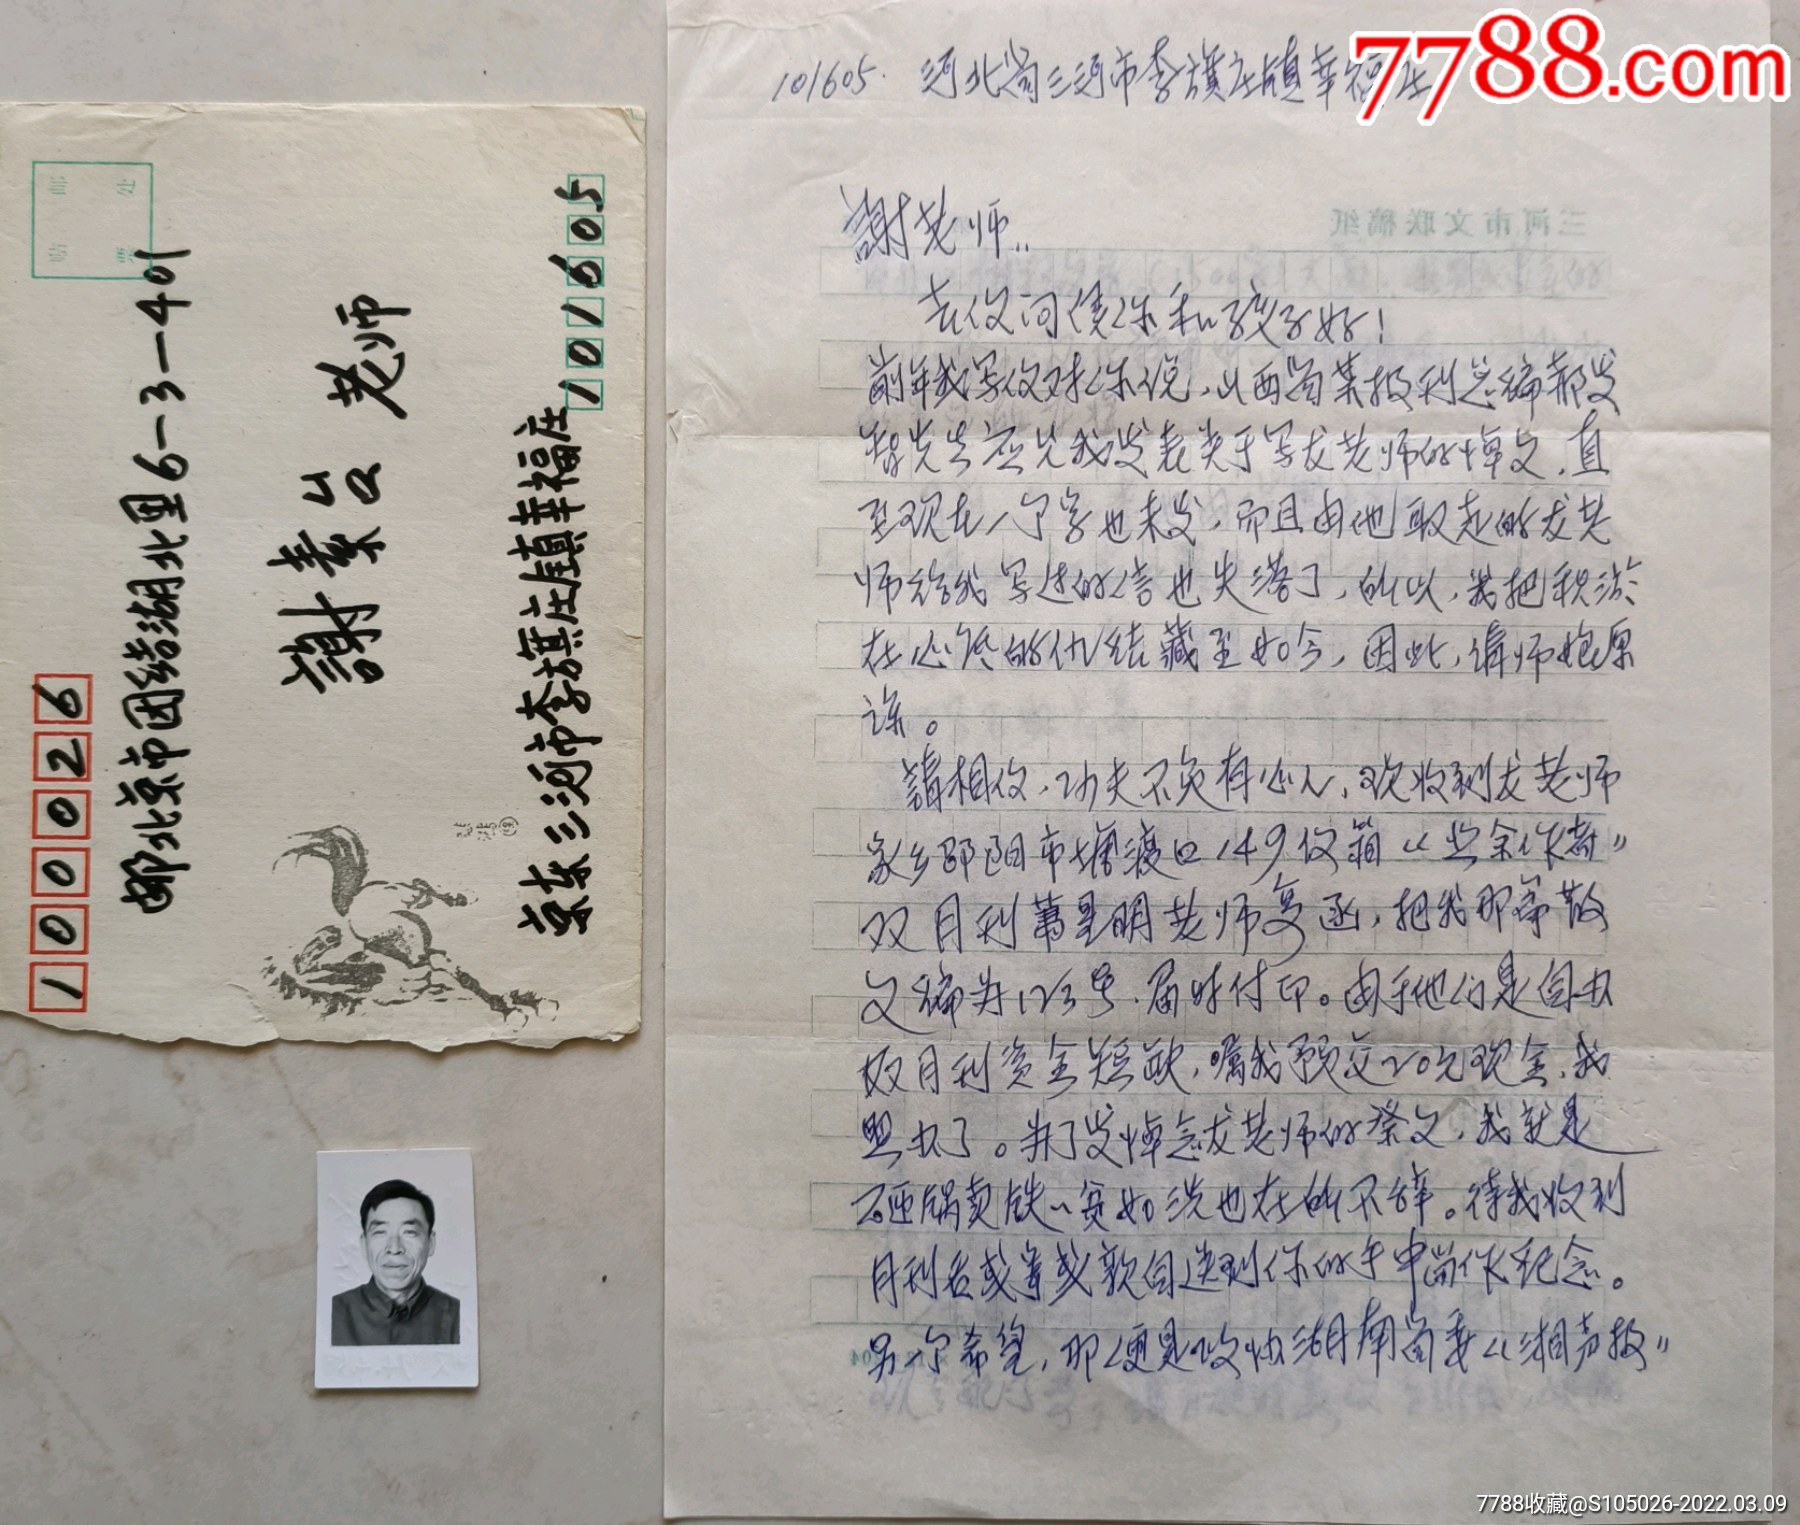 7788.com
101605. 河北省三河市李旗庄镇幸福庄
謝老师:
去仪问侯你和孩子好!
前年我写仪对你说,山西省某报刊总编郝发
智先生应允我发表关于写友老师的悼文,直
至现在一个字也未发,而且由他取走的友老
师给我写过的信也失落了,所以,我把积淤
在心底的仇结藏至如今,因此,请师娘原
谅。
請相仪,功夫不负有心人,现收到友老师
家乡邵阳市塘渡口149仪箱《业余作者》
双月刊萧星明老师复函,把我那篇散
文编为123号,届时付印。由于他们是自办
双月刊资金短缺,嘱我预交20元现金,我
照办了。为了发悼念友老师的祭文,我就是
砸锅卖铁一贫如洗也在所不辞。待我收到
月刊后或寄或亲自送到你的手中尚作纪念。
另一个希望,那便是湖南省委《湘声报》
三河市文联稿纸
邮票
处
贴
100026
邮北京市团结湖北里6-3-401
謝素台 老师
京东三河市李旗庄镇幸福庄
101605
7788收藏@S105026-2022.03.09